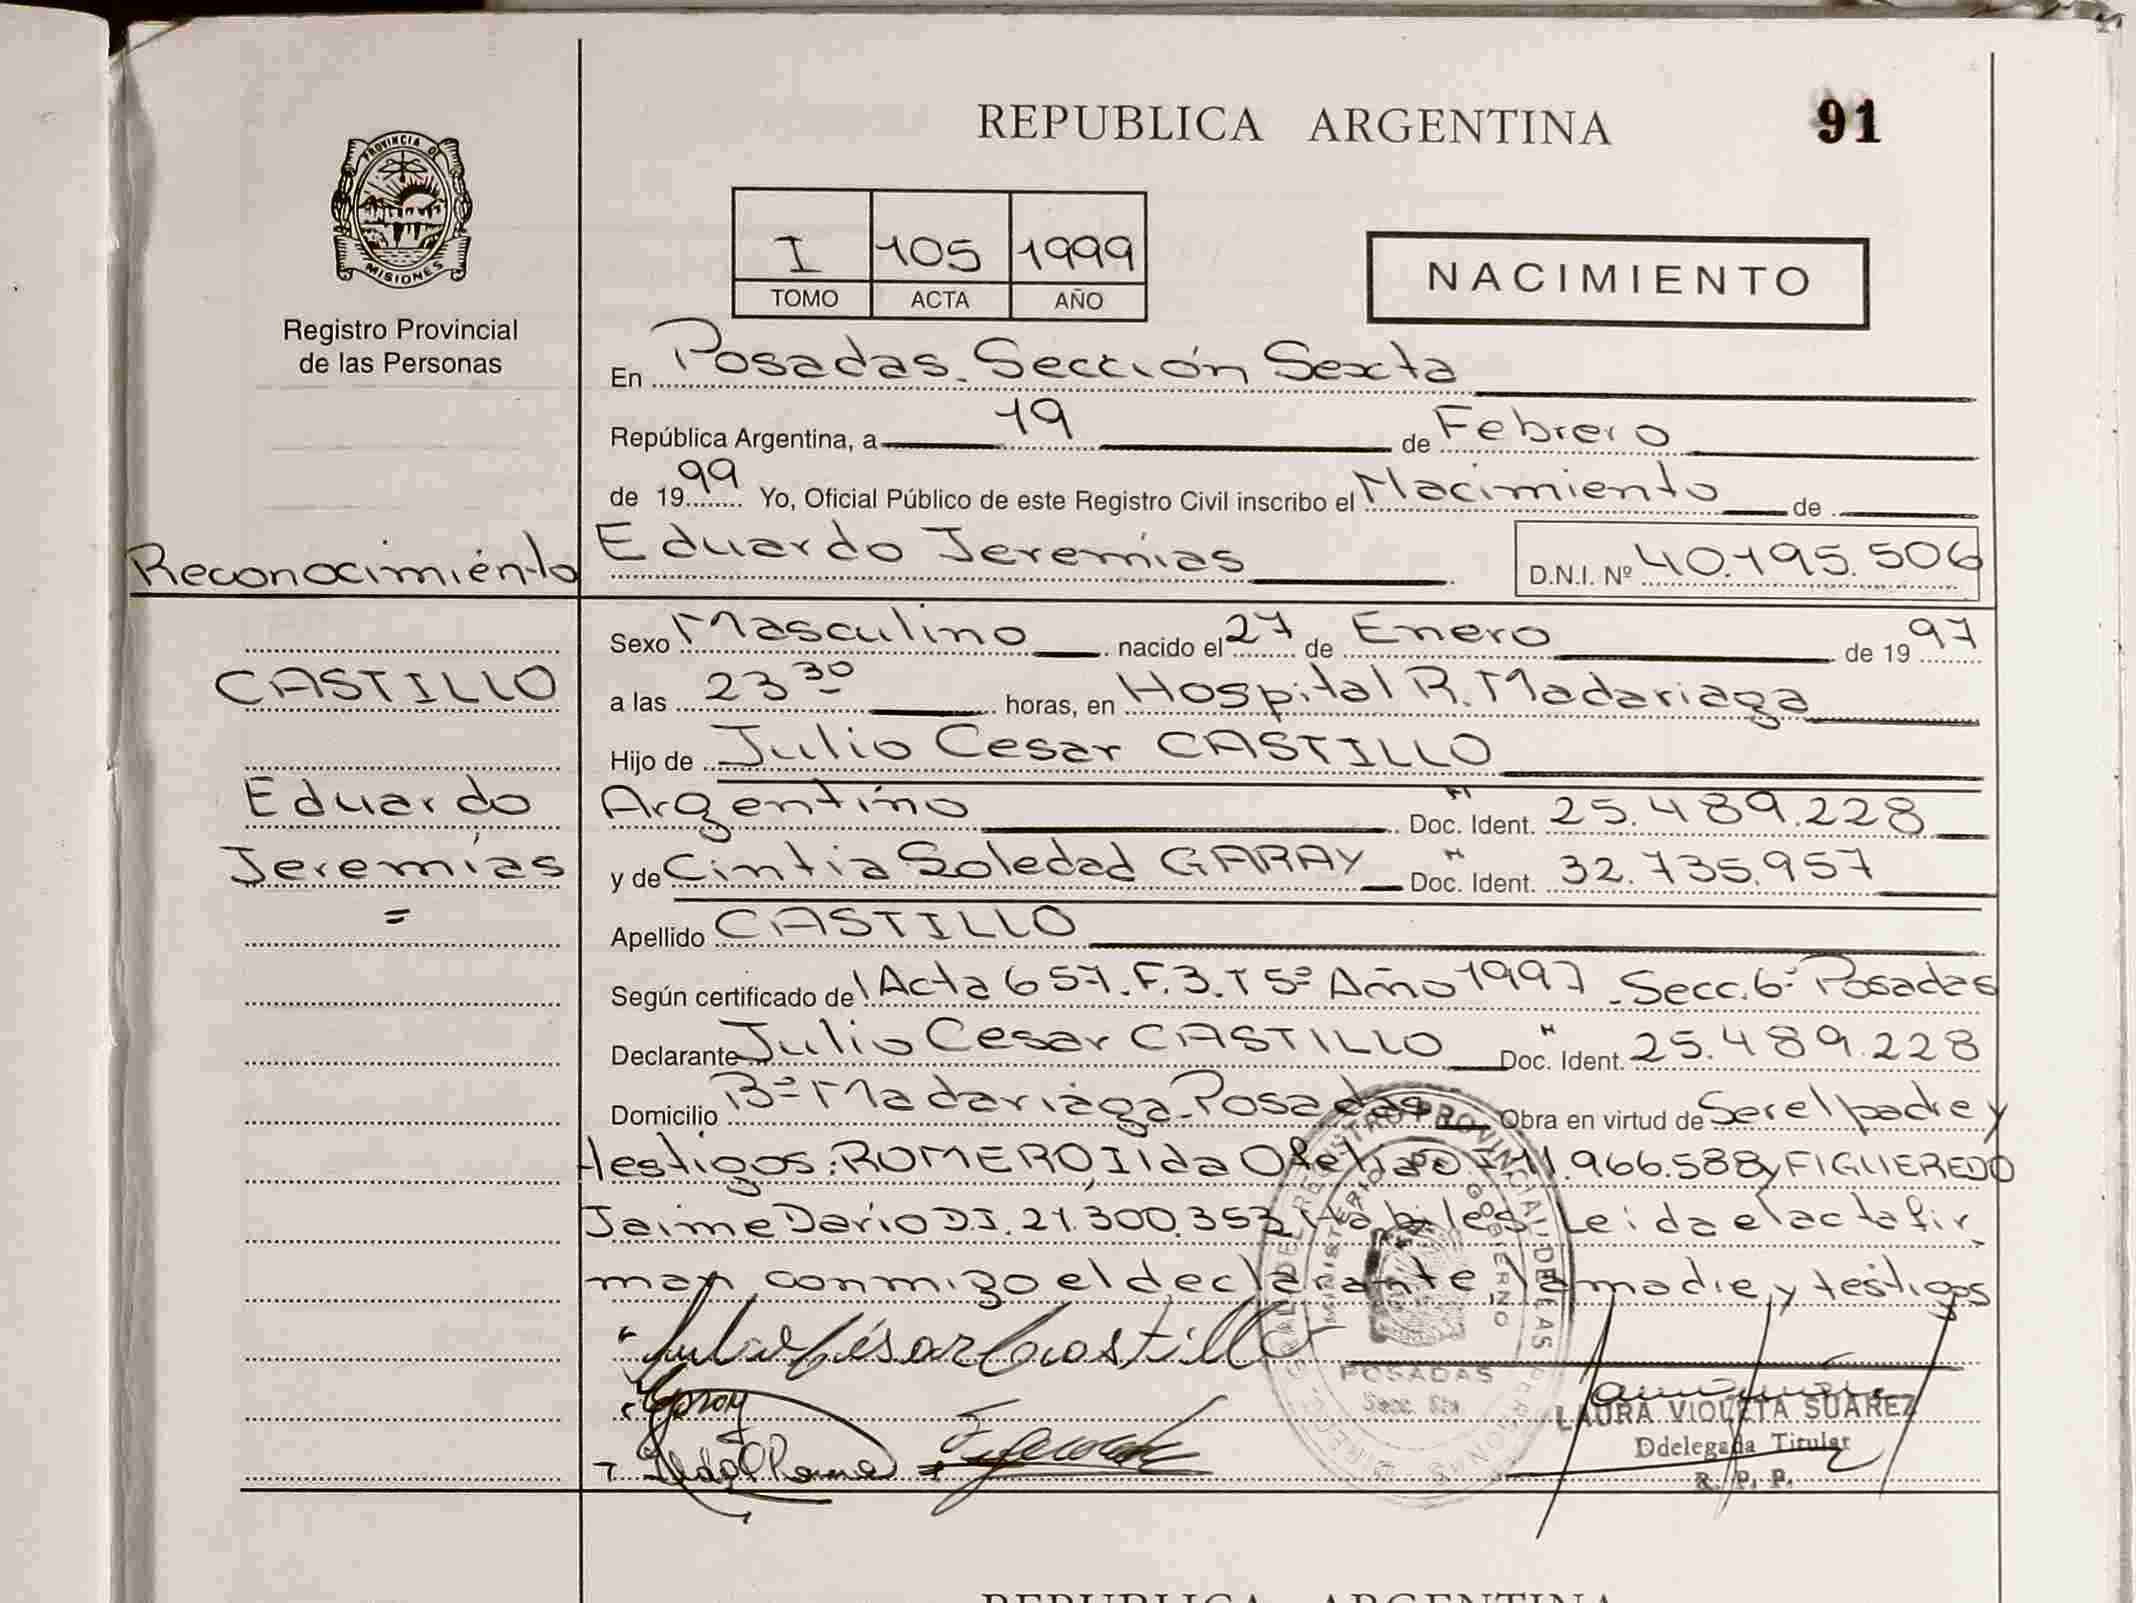 REPUBLICA ARGENTINA
91
PROVINCIA D
MISIONES
Registro Provincial
de las Personas
I 105 1999
TOMO ACTA AÑO
NACIMIENTO
En Posadas. Sección Sexta
República Argentina, a 19 de Febrero
de 1999 Yo, Oficial Público de este Registro Civil inscribo el Nacimiento de
Reconocimiénto
Eduardo Jeremías D.N.I. Nº 40.195.506
Sexo Masculino nacido el 27 de Enero de 1997
CASTILLO
a las 23 30 horas, en Hospital R. Madariaga
Hijo de Julio Cesar CASTILLO
Eduardo
Argentino Doc. Ident. 25.489.228
Jeremías
=
y de Cintia Soledad GARAY Doc. Ident. 32.735.957
Apellido CASTILLO
Según certificado de Acta 657. F. 3. T 5º Año 1997. Secc. 6ª Posadas
Declarante Julio Cesar CASTILLO Doc. Ident. 25.489.228
Domicilio Bº Madariaga-Posadas Obra en virtud de Ser el padre y
testigos: ROMERO, Ilda Ofelia D.I 11.966.588 y FIGUEREDO
Jaime Dario D.I. 21.300.353 Hábiles. Leida el acta fir
man conmigo el declarante, la madre y testigos
Julio César Castillo
Garay
POSADAS
MINISTERIO DE GOBIERNO
LAURA VIOLETA SUAREZ
Ddelegada Titular
R. P. P.
REPUBLICA ARGENTINA